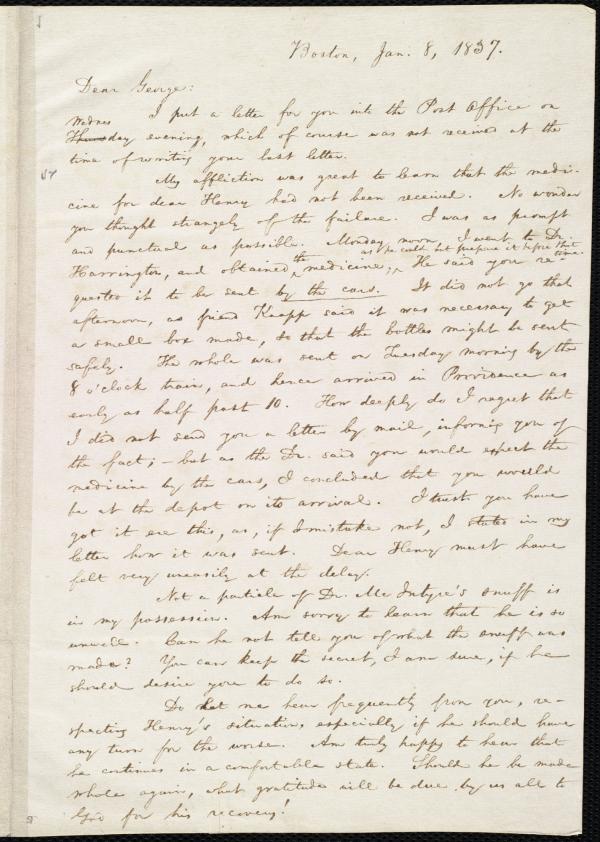 Boston, Jan. 8, 1837.
Dear George:
I put a letter for you into the Post Office on
Wednes
Thursday evening, which of course was not received at the
time of writing your last letter.
My affliction was great to learn that the medi-
cine for dear Henry had not been received. No wonder
you thought strangely of the failure. I was as prompt
and punctual as possible. Monday noon I went to Dr.
Harrington, and obtained the medicine, as he could not prepare it before that time. He said you re-
quested it to be sent by the cars. It did not go that
afternoon, as friend Knapp said it was necessary to get
a small box made, so that the bottles might be sent
safely. The whole was sent on Tuesday morning by the
8 o'clock train, and hence arrived in Providence as
early as half past 10. How deeply do I regret that
I did not send you a letter by mail, informing you of
the fact; — but as the Dr. said you would expect the
medicine by the cars, I concluded that you would
be at the depot on its arrival. I trust you have
got it ere this, as, if I mistake not, I stated in my
letter how it was sent. Dear Henry must have
felt very uneasily at the delay.
Not a particle of Dr. McIntyre's snuff is
in my possession. Am sorry to learn that he is so
unwell. Can he not tell you of what the snuff was
made? You can keep the secret, I am sure, if he
should desire you to do so.
Do let me hear frequently from you, re-
specting Henry's situation, especially if he should have
any turn for the worse. Am truly happy to hear that
he continues in a comfortable state. Should he be made
whole again, what gratitude will be due by us all to
God for his recovery!